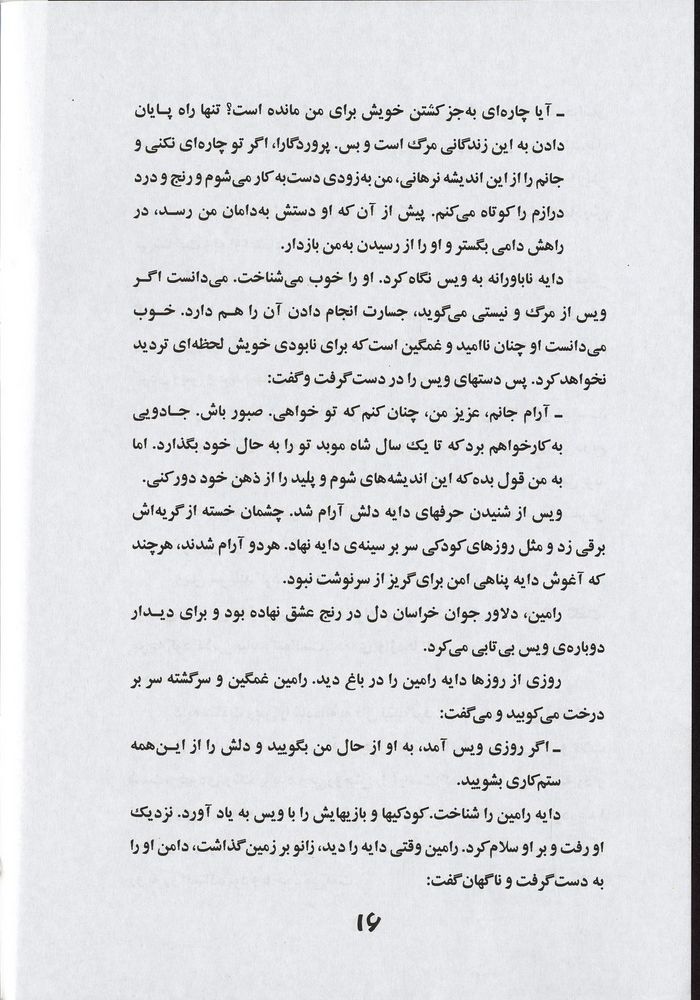 ـ آیا چاره‌ای به‌جز کشتن خویش برای من مانده است؟ تنها راه پایان
دادن به این زندگانی مرگ است و بس. پروردگارا، اگر تو چاره‌ای نکنی و
جانم را از این اندیشه نرهانی، من به‌زودی دست‌به‌کار می‌شوم و رنج و درد
درازم را کوتاه می‌کنم. پیش از آن که او دستش به‌دامان من رسد، در
راهش دامی بگستر و او را از رسیدن به‌من بازدار.
دایه ناباورانه به ویس نگاه کرد. او را خوب می‌شناخت. می‌دانست اگر
ویس از مرگ و نیستی می‌گوید، جسارت انجام دادن آن را هم دارد. خوب
می‌دانست او چنان ناامید و غمگین است که برای نابودی خویش لحظه‌ای تردید
نخواهد کرد. پس دستهای ویس را در دست گرفت و گفت:
ـ آرام جانم، عزیز من، چنان کنم که تو خواهی. صبور باش. جادویی
به کار خواهم برد که تا یک سال شاه موبد تو را به حال خود بگذارد. اما
به من قول بده که این اندیشه‌های شوم و پلید را از ذهن خود دور کنی.
ویس از شنیدن حرفهای دایه دلش آرام شد. چشمان خسته از گریه‌اش
برقی زد و مثل روزهای کودکی سر بر سینه‌ی دایه نهاد. هردو آرام شدند، هرچند
که آغوش دایه پناهی امن برای گریز از سرنوشت نبود.
رامین، دلاور جوان خراسان دل در رنج عشق نهاده بود و برای دیدار
دوباره‌ی ویس بی‌تابی می‌کرد.
روزی از روزها دایه رامین را در باغ دید. رامین غمگین و سرگشته سر بر
درخت می‌کوبید و می‌گفت:
ـ اگر روزی ویس آمد، به او از حال من بگویید و دلش را از این‌همه
ستم‌کاری بشویید.
دایه رامین را شناخت. کودکیها و بازیهایش را با ویس به یاد آورد. نزدیک
او رفت و بر او سلام کرد. رامین وقتی دایه را دید، زانو بر زمین گذاشت، دامن او را
به دست گرفت و ناگهان گفت:
۱۶